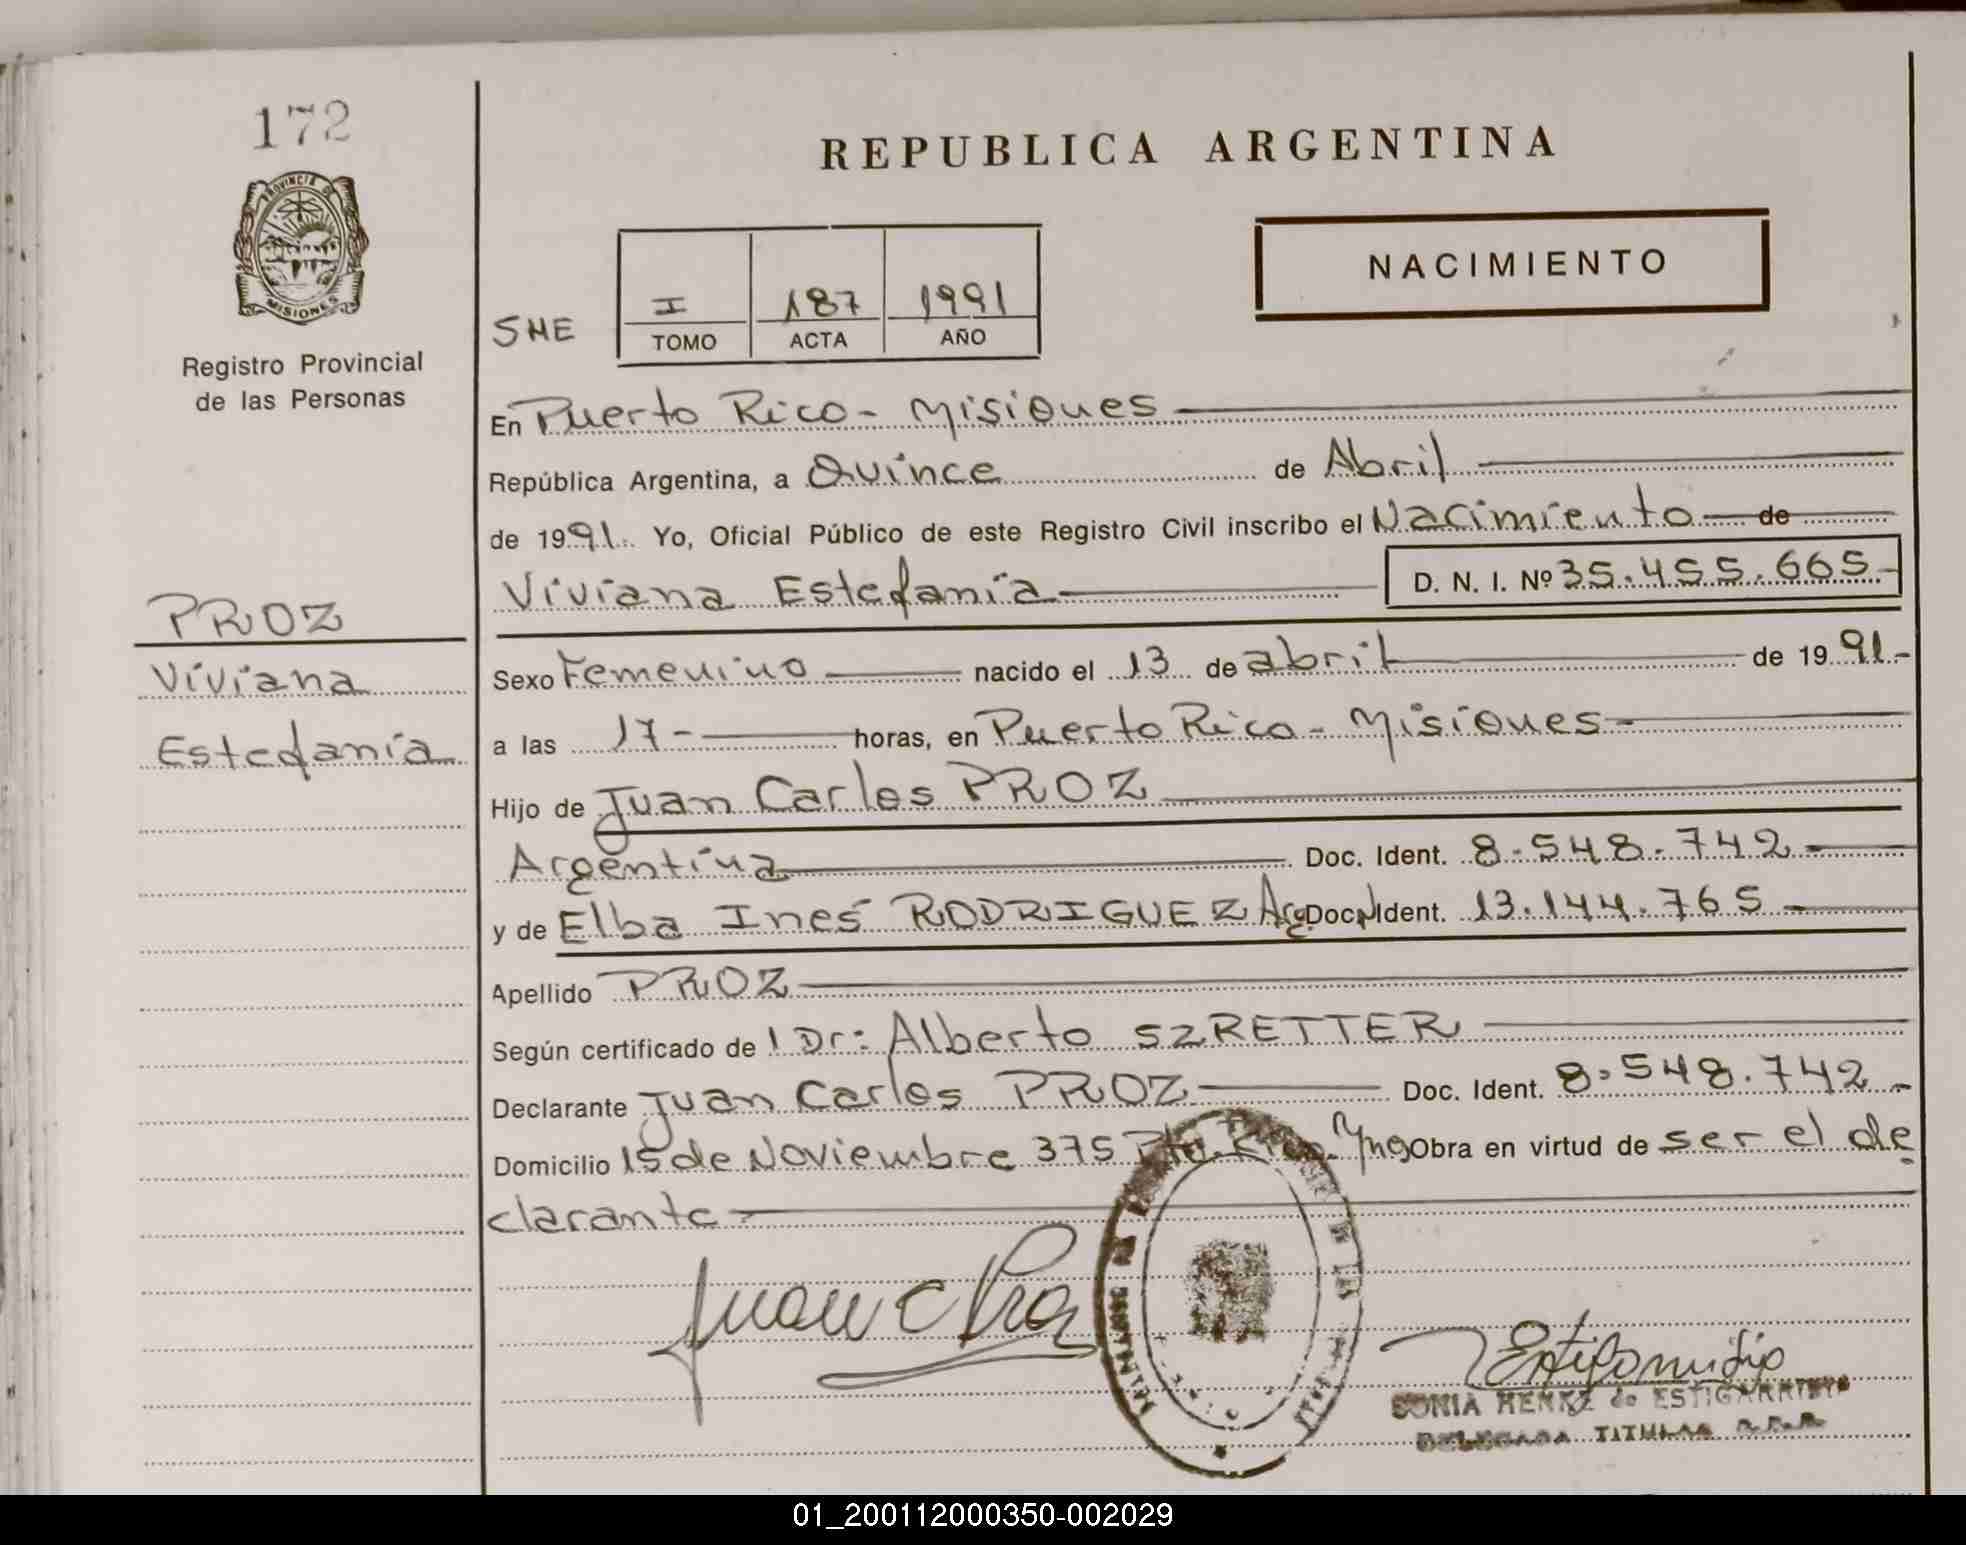 172
PROVINCIA DE
MISIONES
Registro Provincial
de las Personas
PROZ
Viviana
Estefanía
REPUBLICA ARGENTINA
NACIMIENTO
SHE
I 187 1991
TOMO ACTA AÑO
En Puerto Rico - Misiones
República Argentina, a Quince de Abril
de 1991. Yo, Oficial Público de este Registro Civil inscribo el Nacimiento de
Viviana Estefanía D. N. I. Nº 35.455.665-
Sexo Femenino nacido el 13 de abril de 1991-
a las 17- horas, en Puerto Rico - Misiones-
Hijo de Juan Carlos PROZ
Argentina Doc. Ident. 8.548.742
y de Elba Inés RODRIGUEZ Doc. Ident. 13.144.765
Apellido PROZ
Según certificado de l Dr: Alberto SZRETTER
Declarante Juan Carlos PROZ Doc. Ident. 8.548.742-
Domicilio 15 de Noviembre 375 Pto. Rico - Obra en virtud de ser el de
clarante
Juan C Proz
SONIA HENKE de ESTIGARRIBIA
DELEGADA TITULAR R.P.P.
01_200112000350-002029